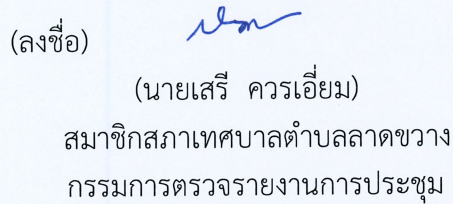 (ลงชื่อ)
(นายเสรี ควรเอี่ยม)
สมาชิกสภาเทศบาลตำบลลาดขวาง
กรรมการตรวจรายงานการประชุม